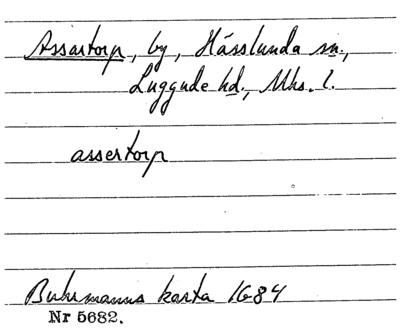 Assartorp, by, Hässlunda sn.,
Luggude hd., Mhs. l.
assertorp
Buhrmanns karta 1684
Nr 5682.